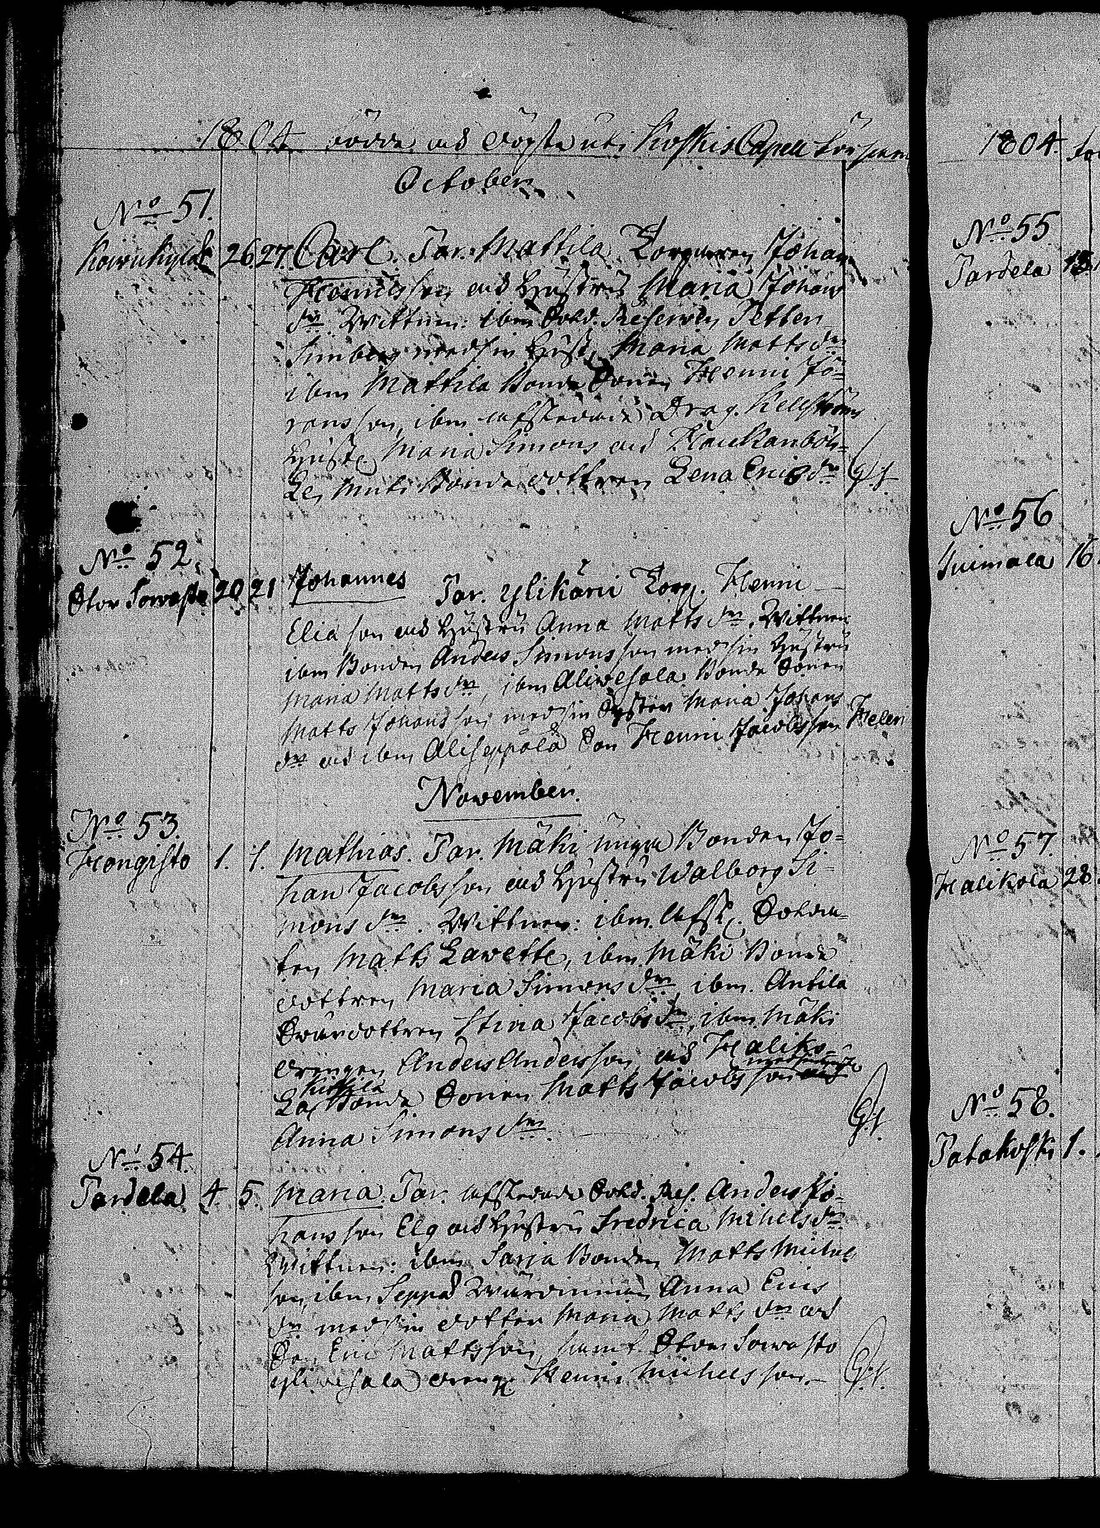 1804 födde och döpte uti Koskis Capell Församl
October
No 51.
Koivukylä 26 27 Carl. Par. Mattila Torparen Johan
Henricsson och Hustru Maria Johans
dr. Wittnen: ibm Sold. Reserven Petter
Simberg med sin Hust. Maria Mattsdr
ibm Mattila Bonde Sonen Henric Jö-
ransson, ibm afskedade Drag. Kellströms
Hustr. Maria Simons och Haukanböh-
le Bonde dottren Lena Ericsdr
No 52.
Stor Sorvasto 20 21 Johannes Par. Ylikärri Torp. Henric
Eliasson och Hustru Anna Mattsdr. Wittnen
ibm Bonden Anders Simonsson med sin Hustru
Maria Mattsdr, ibm Alivesala Bonde Sonen
Matts Johansson med sin Syster Maria Johans
dr och ibm Aliseppälä Son Henric Jacobsson
November.
No 53.
Hongisto 1. 1. Mathias. Par. Mäki unga Bonden Jo-
han Jacobsson och Hustru Walborg Si-
monsdr. Wittnen: ibm afsk. Solda-
ten Matts Lavette, ibm Mäki Bonde
dottren Maria Simonsdr ibm. Antila
Svärdottren Stina Jacobsdr, ibm Mäki
drengen Anders Andersson och Haliko-
la Kuttila Bonde Sonen Matts Jacobsson
Anna Simonsdr.
No 54.
Pardela 4. 5. Maria. Par. afskedade Sold. Res. Anders Jo-
hansson Elg och Hustru Fredrica Michelsdr
Wittnen: ibm Sarja Bonden Matts Michel
son, ibm Seppä Wärdinnan Anna Erics
dr med sin dotter Maria Mattsdr och
Son Eric Mattsson, samt Stor Sorvasto
Ylivesala dreng Henric Michelsson.
1804.
No 55
Pardela 13
No 56
Suimala 16
No 57.
Halikola 28
No 58.
Patakoski 1.